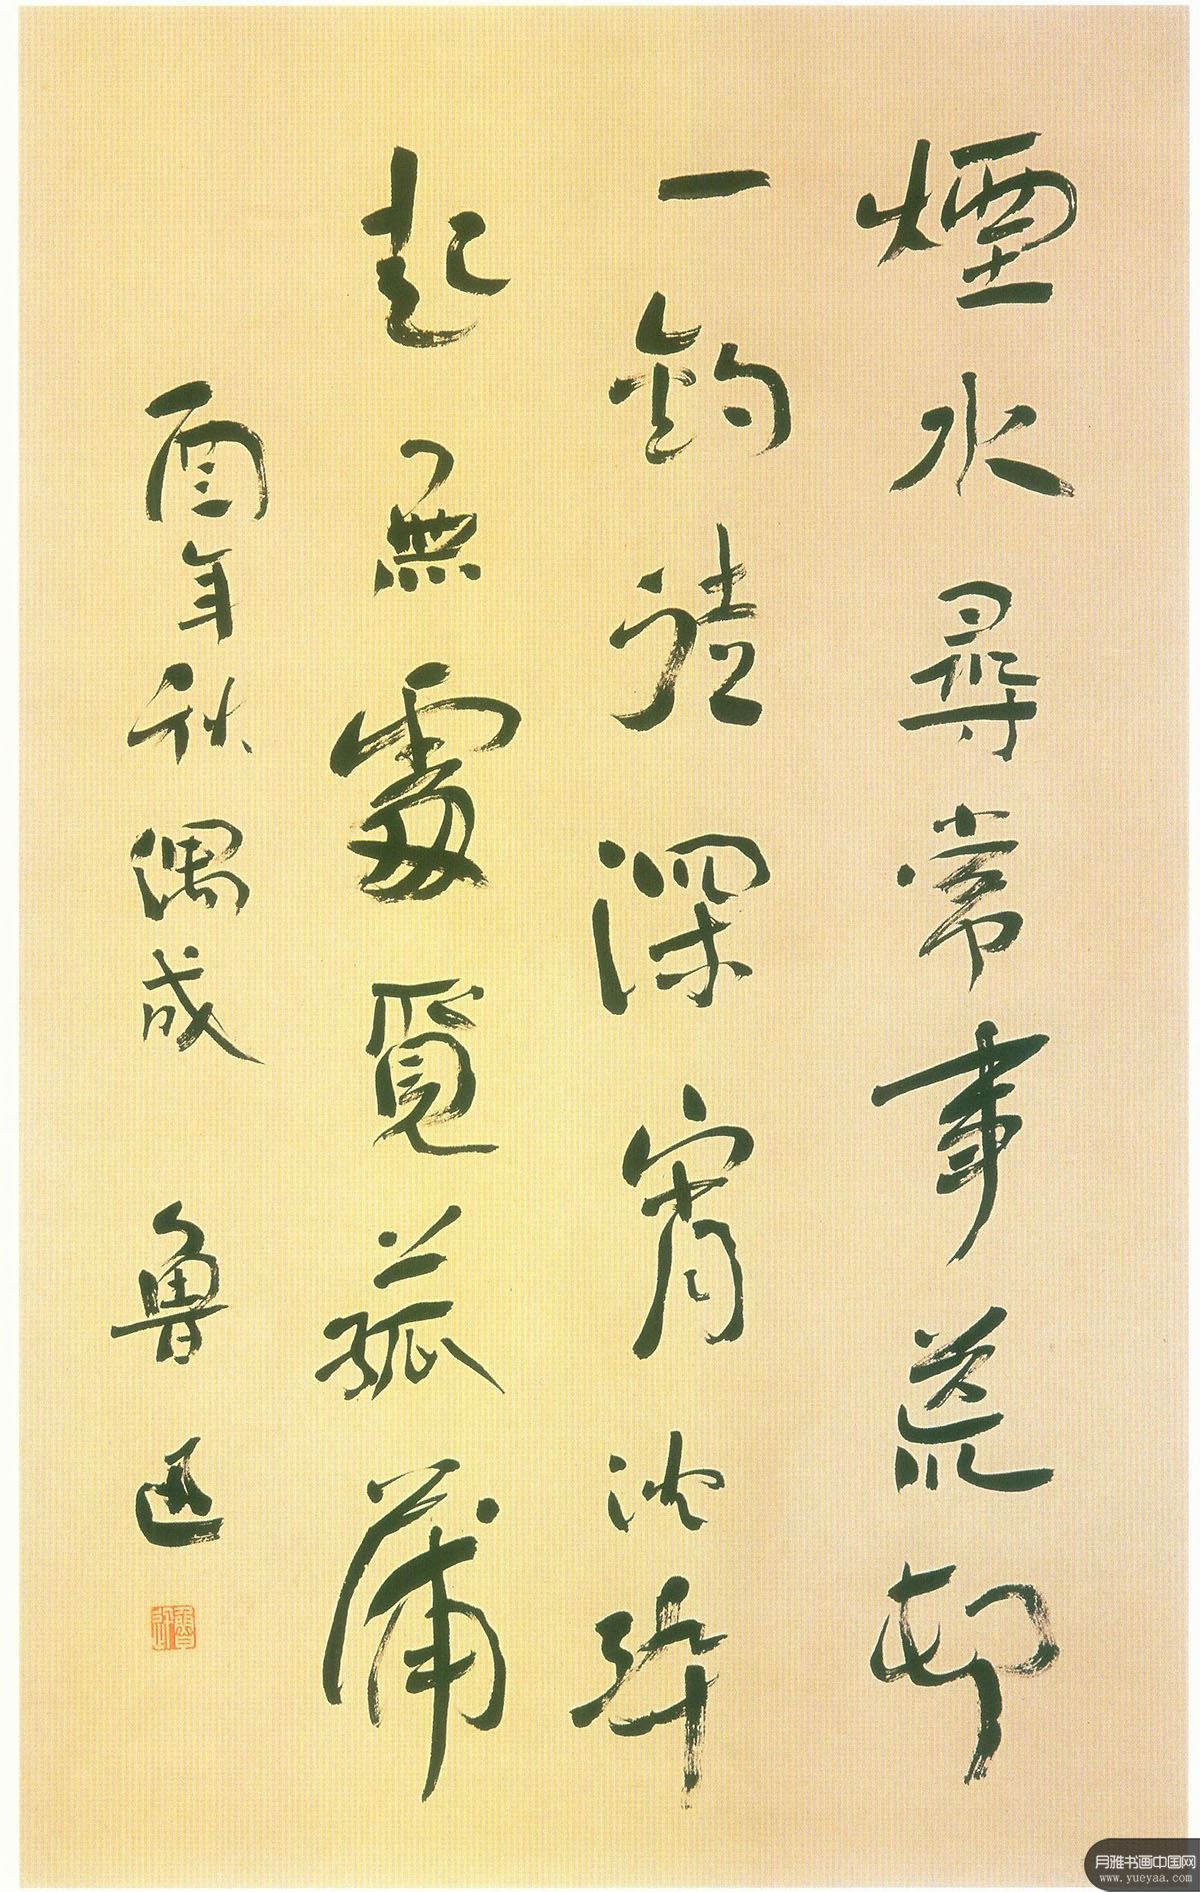 煙水尋常事荒邨
一釣徒深宵沈醉
起無處覓菰蒲
酉年秋偶成 魯迅
魯迅
月雅书画中国网
www.yueyaa.com